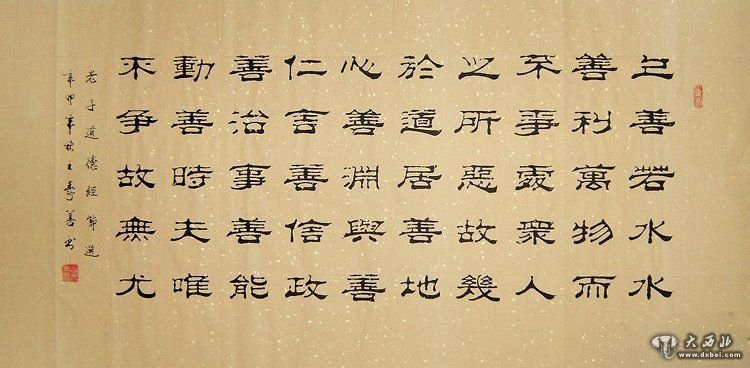 上善若水水
善利萬物而
不爭處衆人
之所惡故幾
於道居善地
心善淵與善
仁言善信政
善治事善能
動善時夫唯
不爭故無尤
老子道德經節選
辛卯年秋王善书
大西北
www.dxbei.com